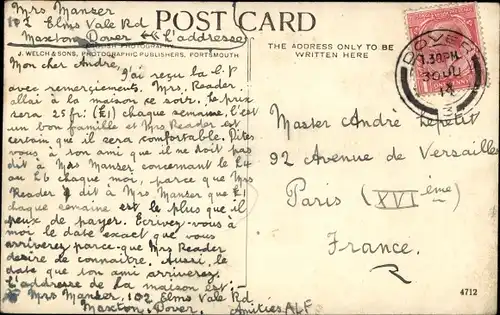 Mrs Manser
102 Elms Vale Rd
Maxton Dover ← L'adresse
POST CARD
J. WELCH & SONS, PHOTOGRAPHIC PUBLISHERS, PORTSMOUTH.
THE ADDRESS ONLY TO BE
WRITTEN HERE
DOVER
1.30 PM
30 JU
Mon cher André,
J'ai reçu la C.P
avec remerciements. Mrs. Reader
allai à la maison ce soir. Le prix
sera 25 fr: (£1) chaque semaine. C'est
un bon famille et Mrs Reader est
certain que il sera comfortable. Dites
vous à ton ami que il ne doit pas
dit à Mrs Manser concernant le £4
ou £6 chaque moi, parce que Mrs
Reader a dit à Mrs Manser que £1
chaque semaine est le plus que il
peux de payer. Ecrivez-vous à
moi le date exact que vous
arriverez parce-que Mrs Reader
desire de connaitre. Aussi, le
date que ton ami arriverez.
L'address de la maison est :-
Mrs Manser, 102 Elms Vale Rd
Maxton, Dover. Amitiés ALF
Master André
92 Avenue de Versailles
Paris (XVI ème)
France.
4712